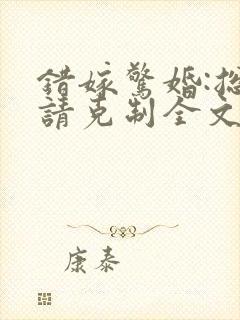 錯嫁驚婚:總
請克制全文
康泰